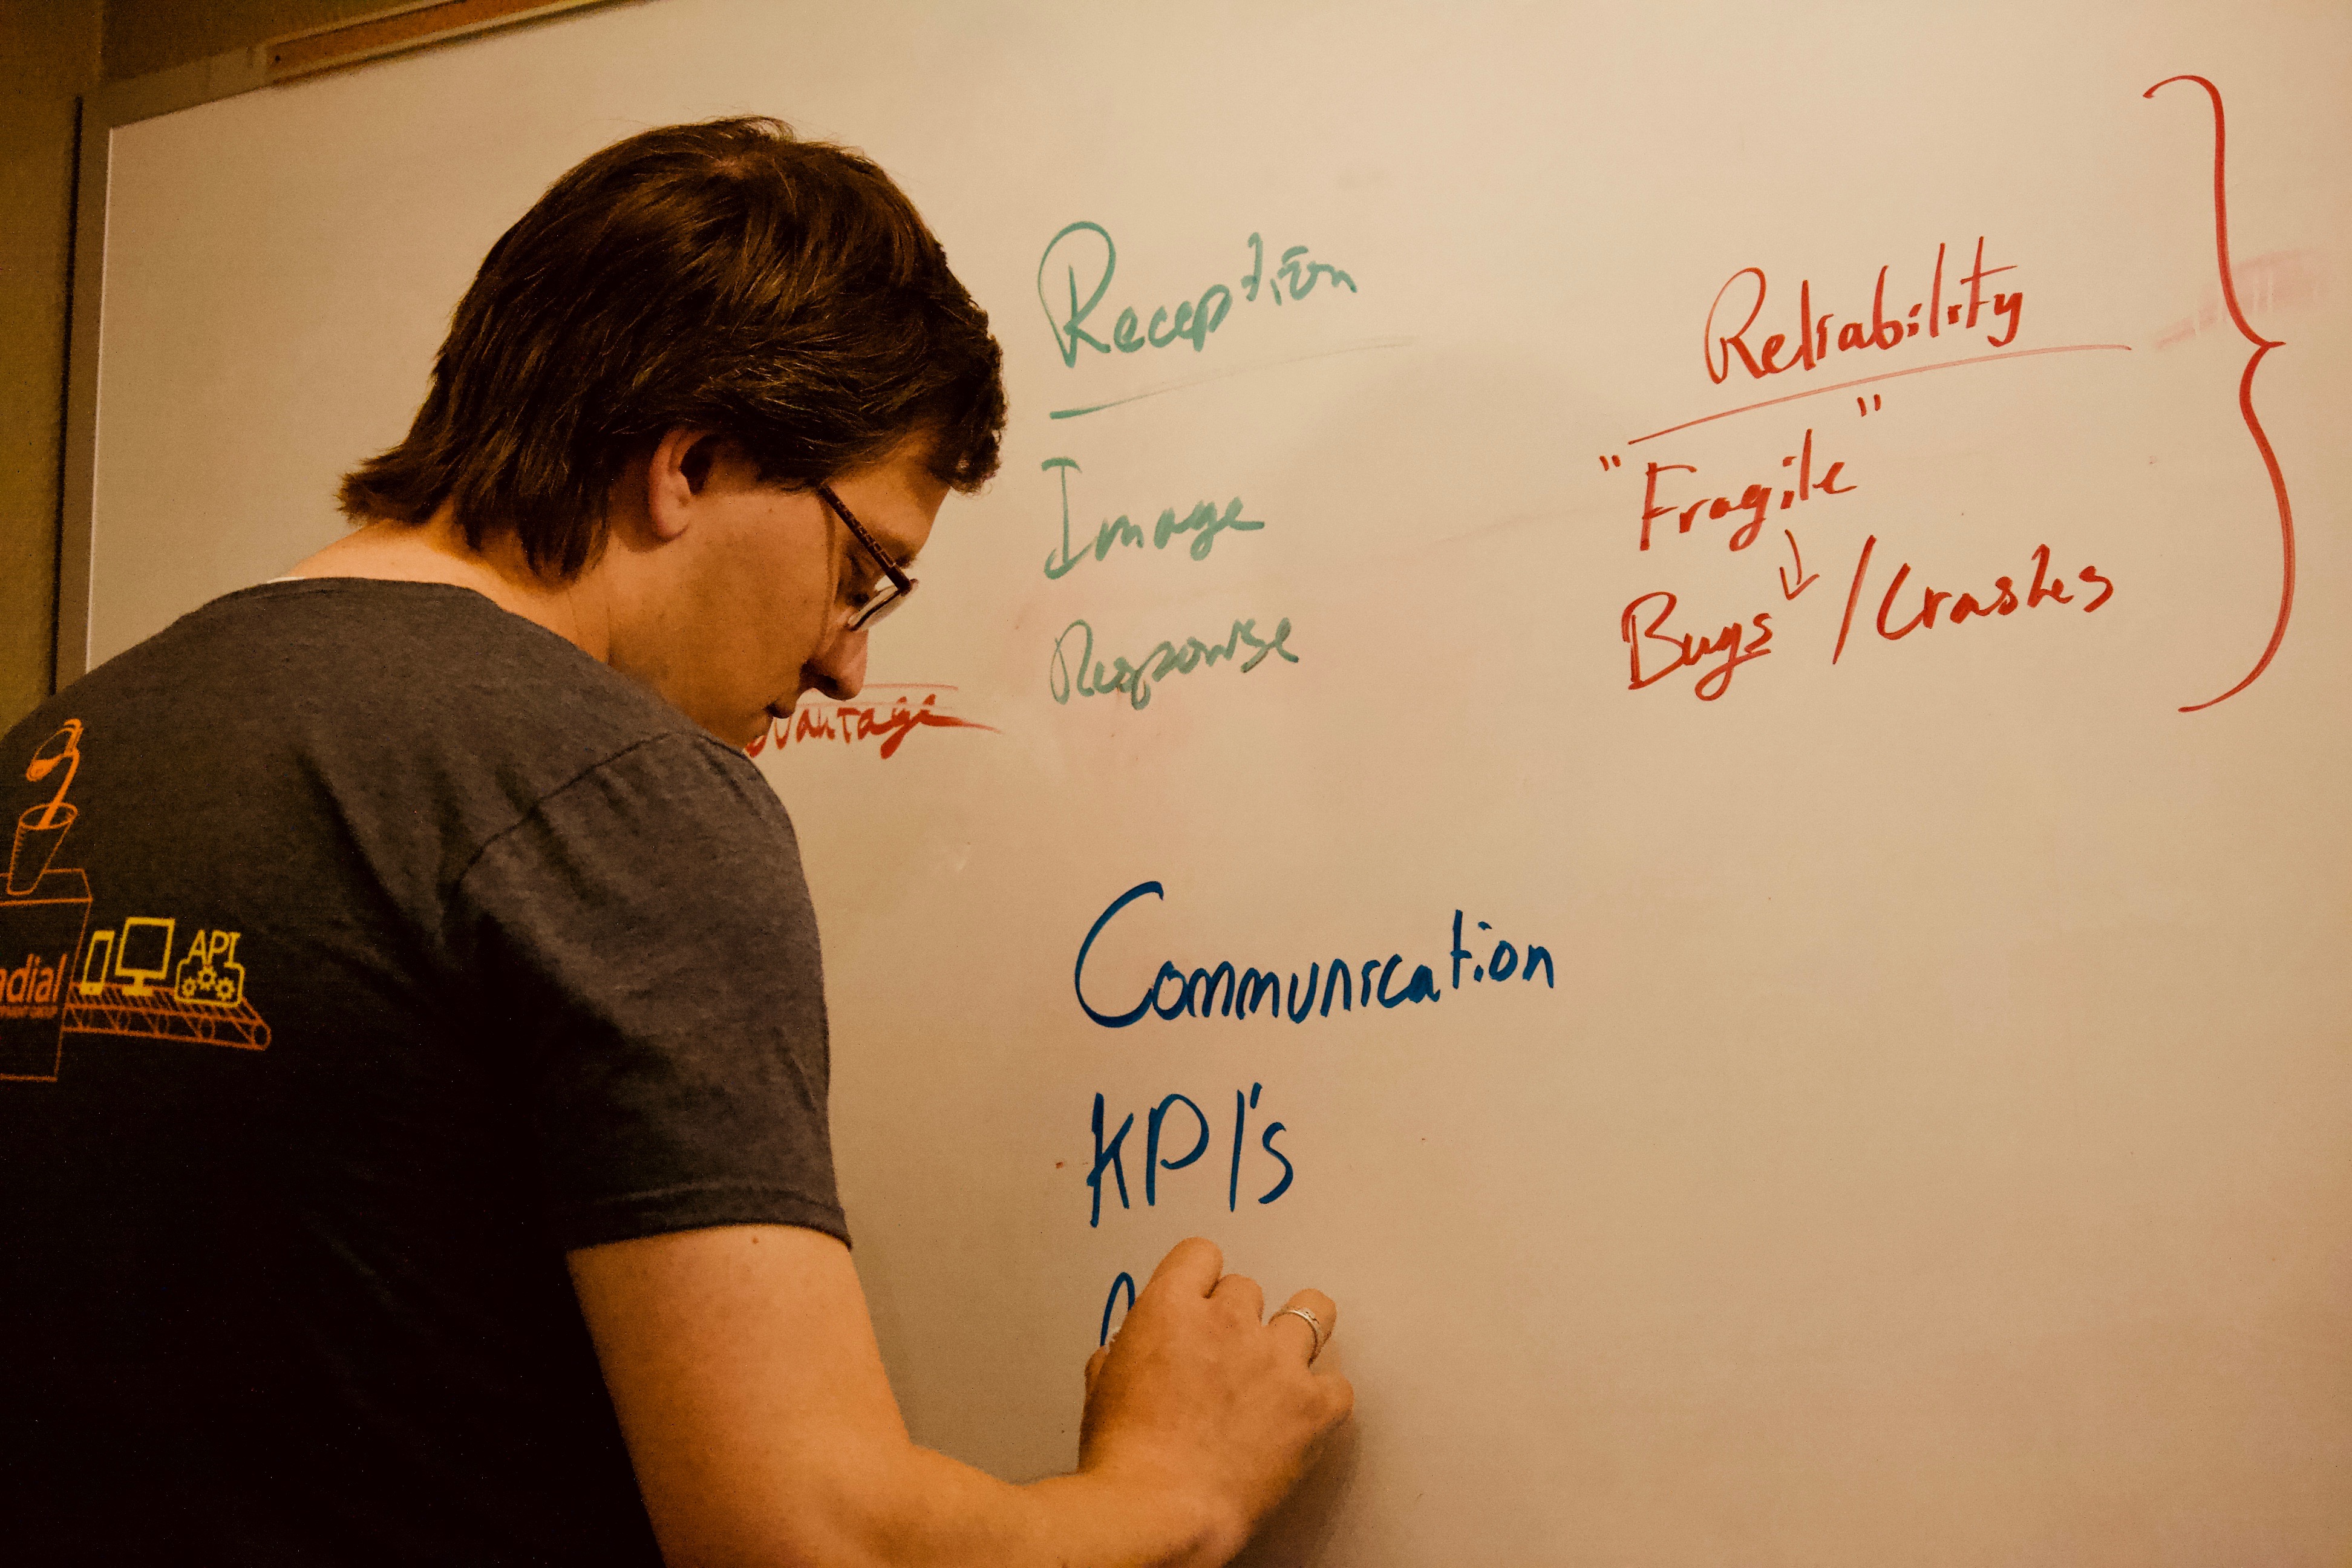 Reception
Image
Response
Reliability
"Fragile"
Bugs / Crashes
Communication
KPI's
API